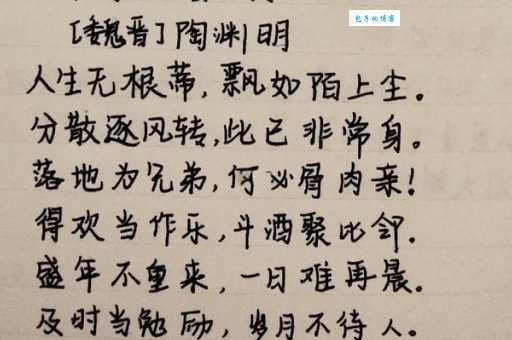 包子的博客
[魏晋]陶渊明
人生无根蒂,飘如陌上尘。
分散逐风转,此已非常身。
落地为兄弟,何必骨肉亲!
得欢当作乐,斗酒聚比邻.
盛年不重来,一日难再晨。
及时当勉励,岁月不待人。